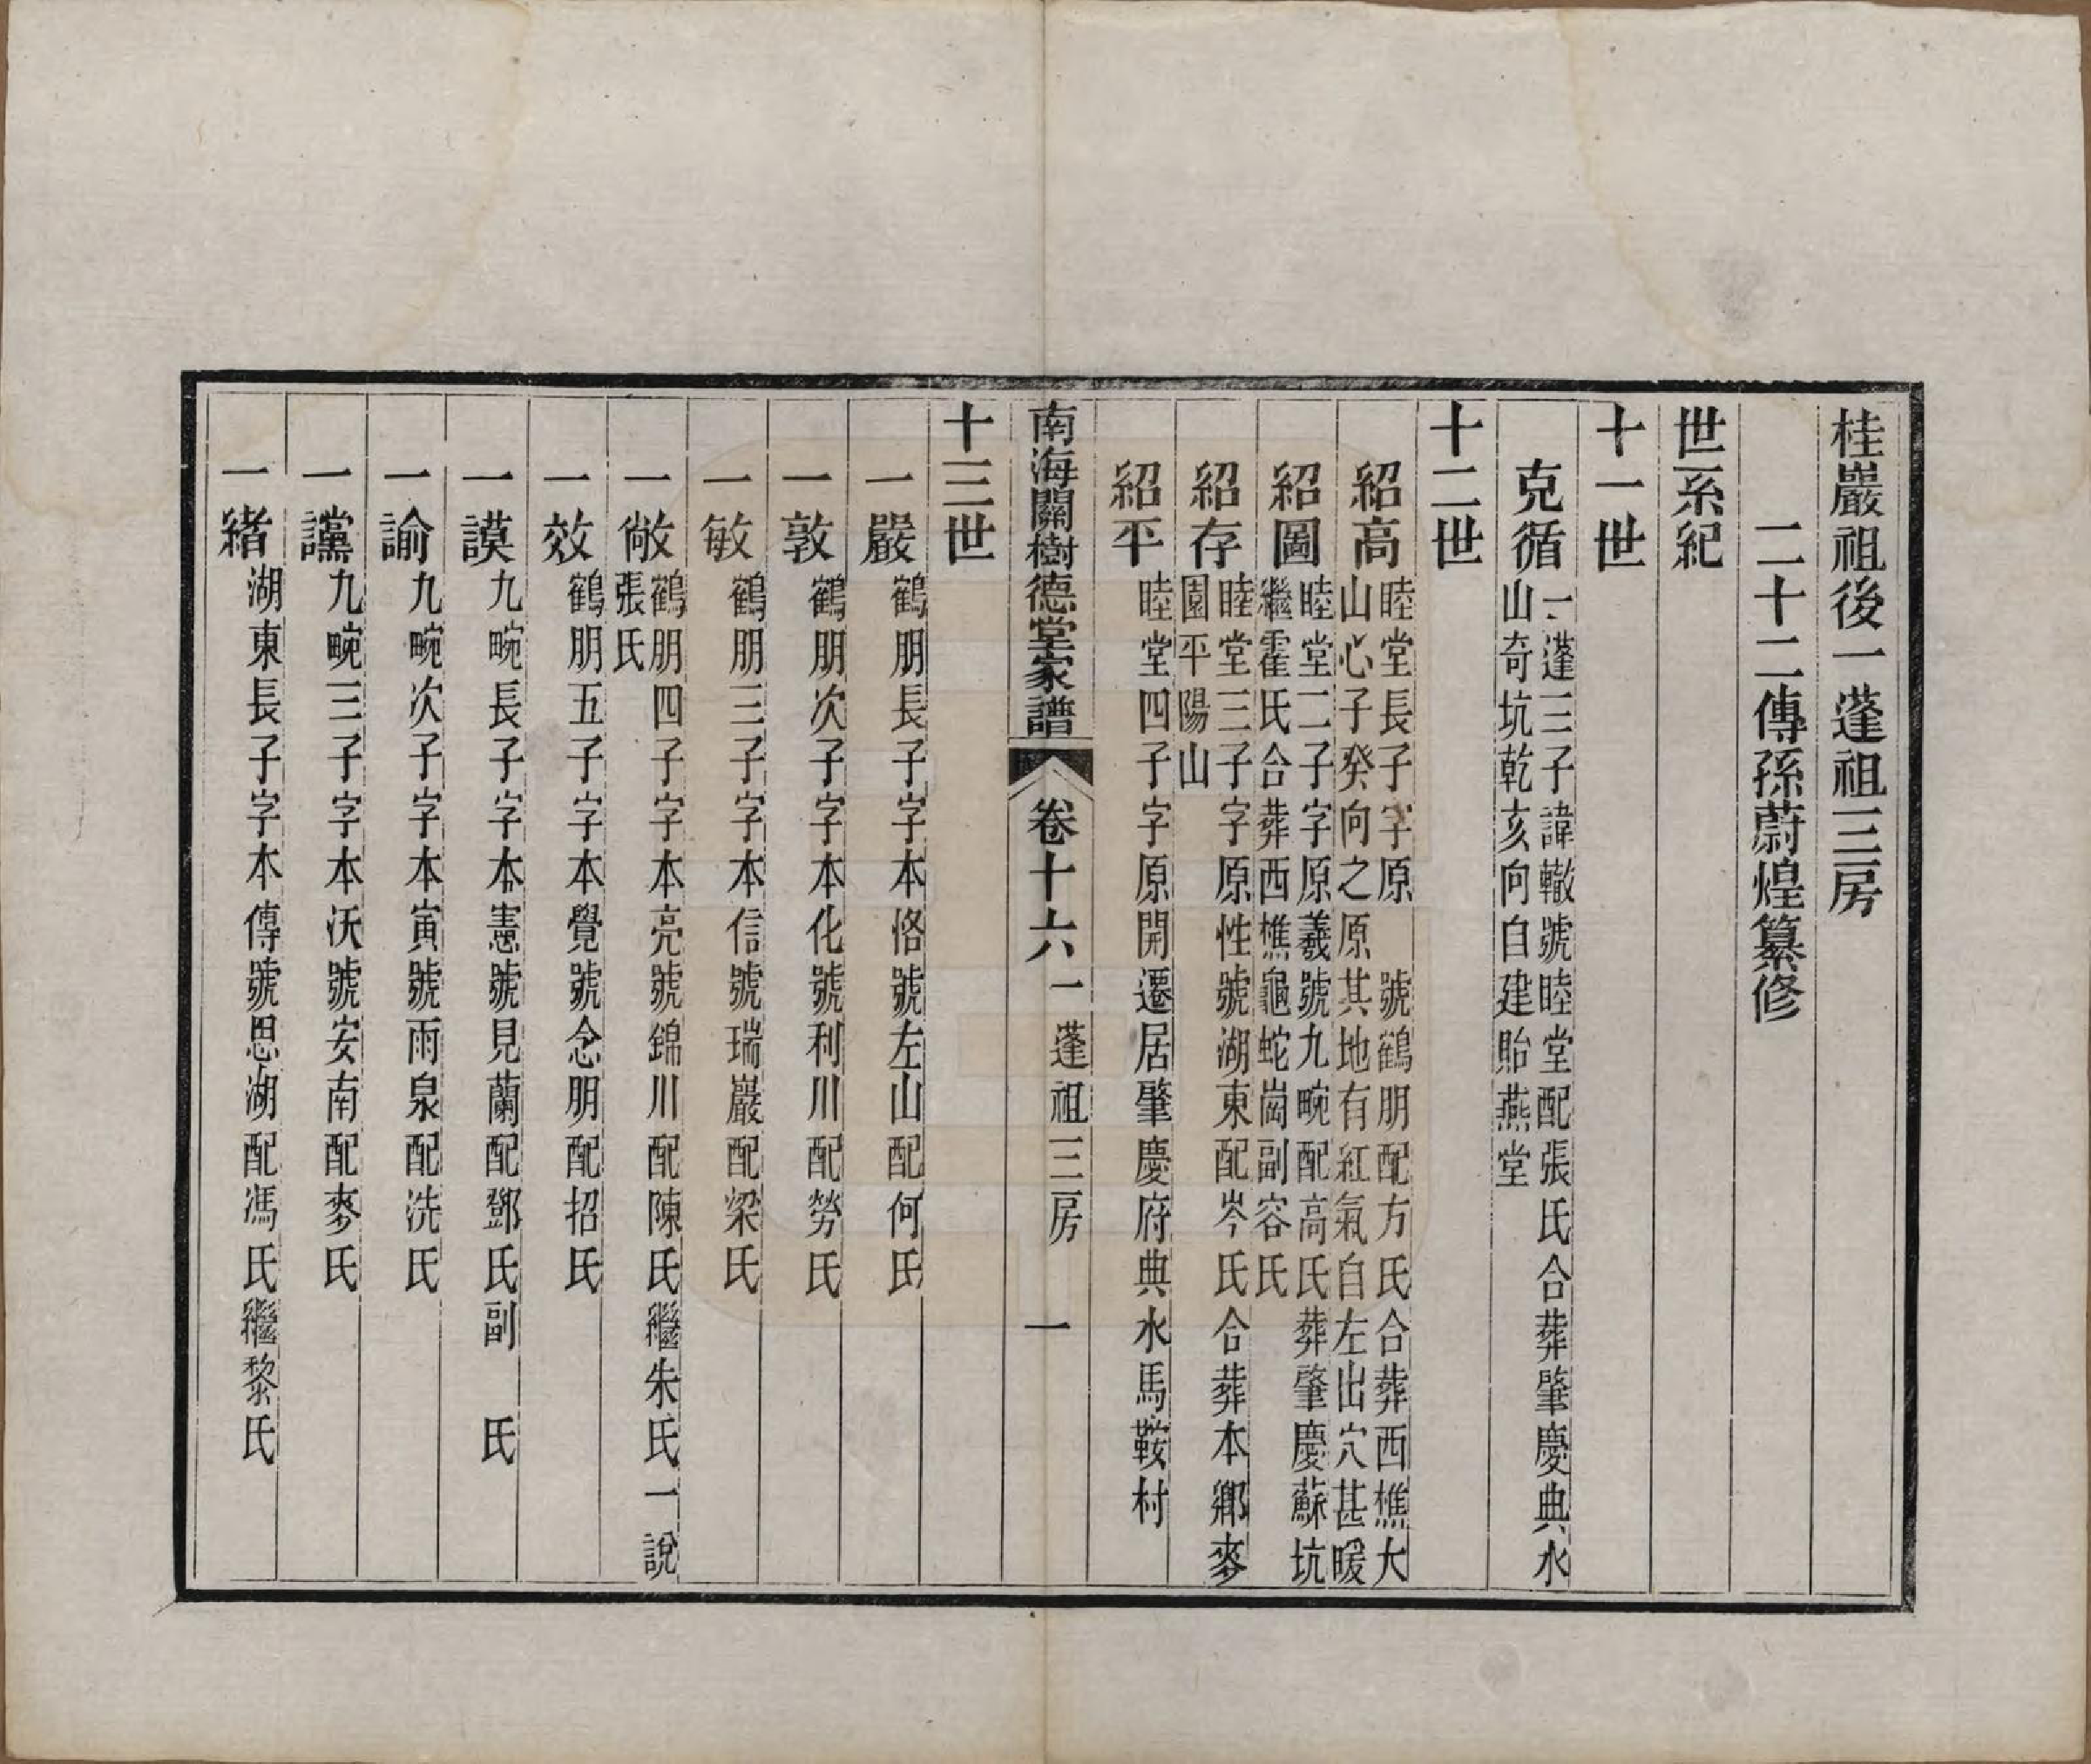 桂巖祖後一蓬祖三房
二十二傳孫蔚煌纂修
世系紀
十一世
克循一蓬三子諱轍號睦堂配張氏合葬肇慶典水
山奇坑乾亥向自建貽燕堂
十二世
紹高睦堂長子字原 號鶴朋配方氏合葬西樵大
山心子癸向之原其地有紅氣自左出穴甚暖
紹圖睦堂二子字原羲號九畹配高氏葬肇慶蘇坑
繼霍氏合葬西樵龜蛇崗副容氏
紹存睦堂三子字原性號湖東配岑氏合葬本鄉麥
園平陽山
紹平睦堂四子字原開遷居肇慶府典水馬鞍村
南海關樹德堂家譜 卷十六一蓬祖三房 一
十三世
一嚴鶴朋長子字本恪號左山配何氏
一敦鶴朋次子字本化號利川配勞氏
一敏鶴朋三子字本信號瑞巖配梁氏
一敞鶴朋四子字本亮號錦川配陳氏繼朱氏一說
張氏
一效鶴朋五子字本覺號念朋配招氏
一謨九畹長子字本憲號見蘭配鄧氏副 氏
一諭九畹次子字本寅號雨泉配冼氏
一讜九畹三子字本沃號安南配麥氏
一緒湖東長子字本傳號思湖配馮氏繼黎氏